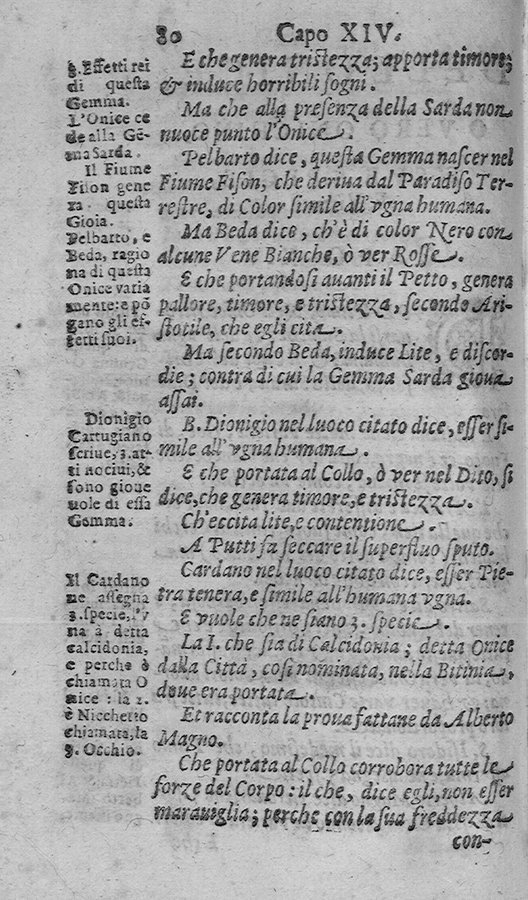 80 Capo XIV.
E che genera tristezza; apporta timore;
& induce horribili sogni.
Ma che alla presenza della Sarda non
nuoce punto l'Onice.
Pelbarto dice, questa Gemma nascer nel
Fiume Fison, che deriua dal Paradiso Ter-
restre, di Color simile all'vgna humana.
Ma Beda dice, ch'è di color Nero con
alcune Vene Bianche, ò ver Rosse.
E che portandosi auanti il Petto, genera
pallore, timore, e tristezza, secondo Ari-
stotile, che egli cita.
Ma secondo Beda, induce Lite, e discor-
die; contra di cui la Gemma Sarda gioua
assai.
B. Dionigio nel luoco citato dice, esser si-
mile all'vgna humana.
E che portata al Collo, ò ver nel Dito, si
dice, che genera timore, e tristezza.
Ch'eccita lite, e contentione.
A Putti fa seccare il superfluo sputo.
Cardano nel luoco citato dice, esser Pie-
tra tenera, e simile all'humana vgna.
E vuole che ne siano 3. specie.
La I. che sia di Calcidonia; detta Onice
dalla Città, così nominata, nella Bitinia,
doue era portata.
Et racconta la proua fattane da Alberto
Magno.
Che portata al Collo corrobora tutte le
forze del Corpo: il che, dice egli, non esser
marauiglia; perche con la sua freddezza
con-
3. Effetti rei
di questa
Gemma.
L'Onice ce
de alla Gē-
ma Sarda.
Il Fiume
Fison gene
ra questa
Gioia.
Pelbarto, e
Beda, ragio
na di questa
Onice varia
mente: e pō
gano gli ef-
fetti suoi.
Dionigio
Cartugiano
scriue, 3. at-
ti nociui, &
sono gioue
uole di essa
Gemma.
Il Cardano
ne assegna
3. specie, l'v
na à detta
calcidonia,
e perche è
chiamata O
nice: la 2.
è Nicchetto
chiamata, la
3. Occhio.